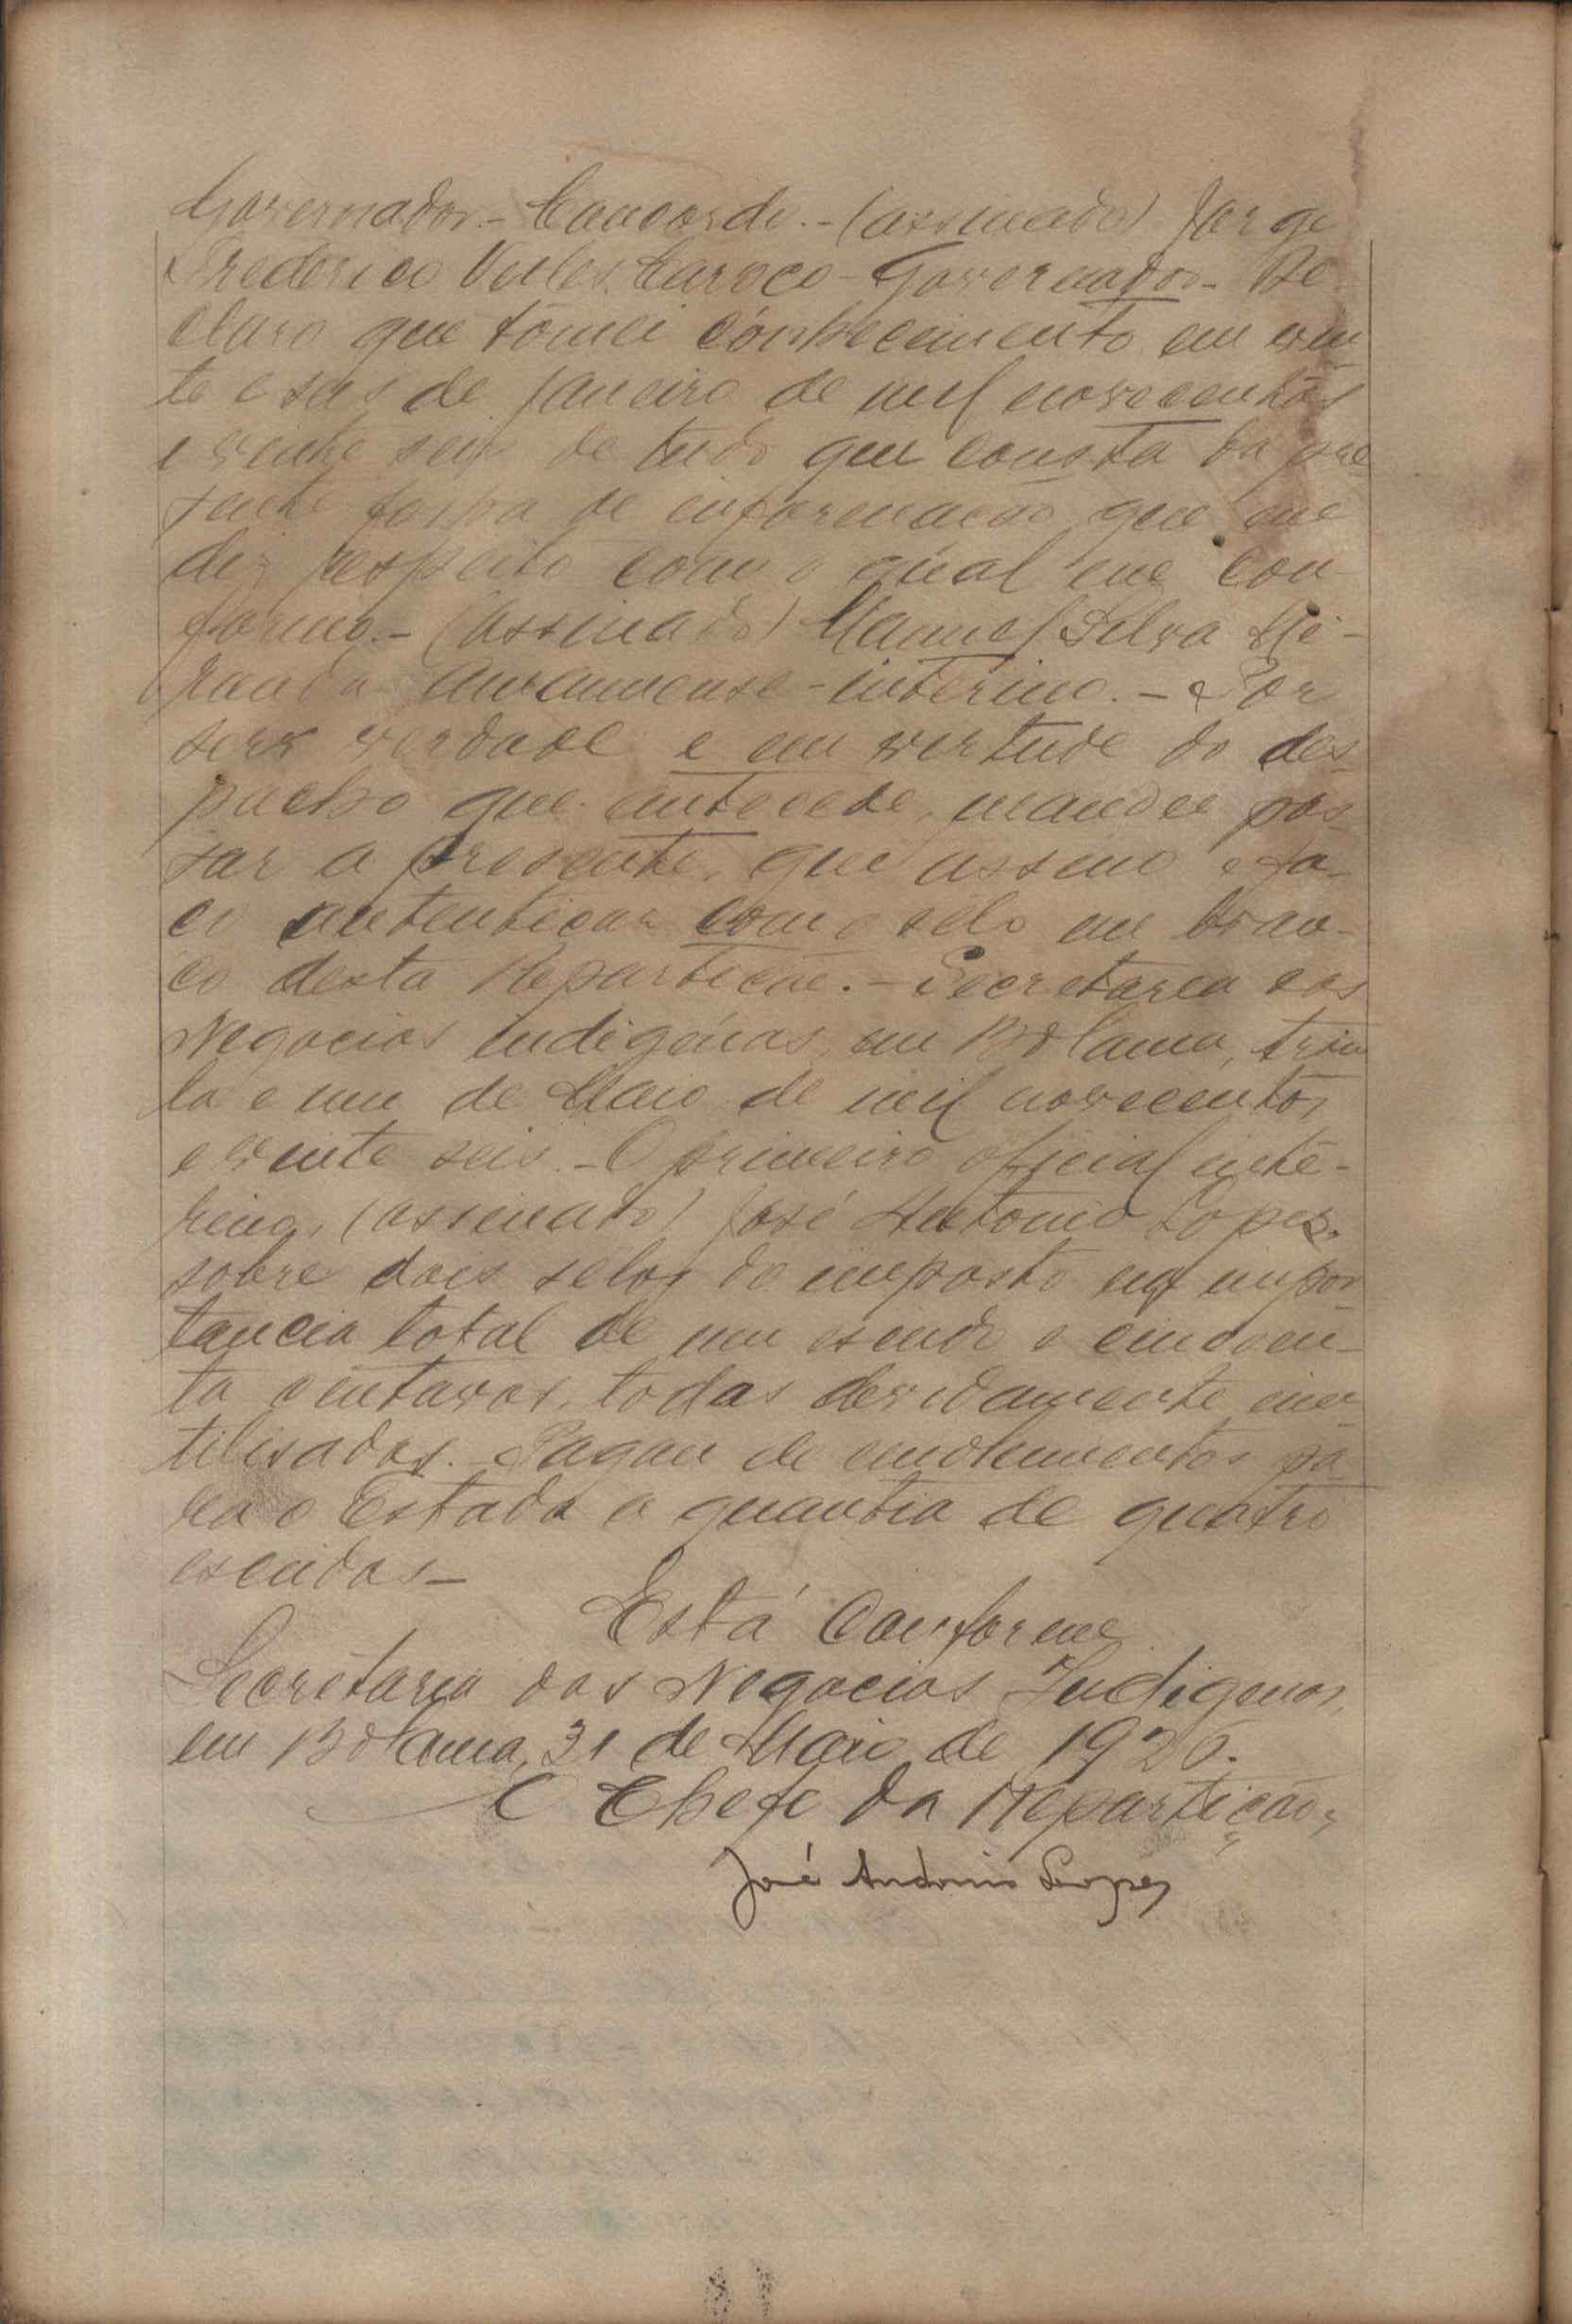 Governador.- Concordo.-(assinado) Jorge
Frederico Velez Caroço - Governador - De
claro que tomei conhecimento em vin
te e seis de Janeiro de mil novecentos
e vinte seis de tudo que consta da pre
sente folha de informação que me
diz respeito com o qual me con-
formo.- (assinado) Manuel Silva Mi-
randa amanuense-interino. - Por
ser verdade e em virtude do des
pacho que antecede, mandei pas
sar a presente, que assino e fa-
ço autenticar com o selo em bran-
co desta Repartição. - Secretaria dos
Negocios indigenas, em Bolama, trin
ta e um de Maio de mil novecentos
e vinte seis. - O primeiro oficial inte-
rino, (assinado) José Antonio Lopes.
sobre dois selos do imposto na impor
tancia total de um escudo e cincoen-
ta centavos, todas devidamente inu
tilisados. - Pagou de emolumentos pa
ra o Estado a quantia de quatro
escudos -
Está Conforme
Secretaria dos Negocios Indigenas,
em Bolama, 31 de Maio de 1926.
O Chefe da Repartição,
José Antonio Lopes